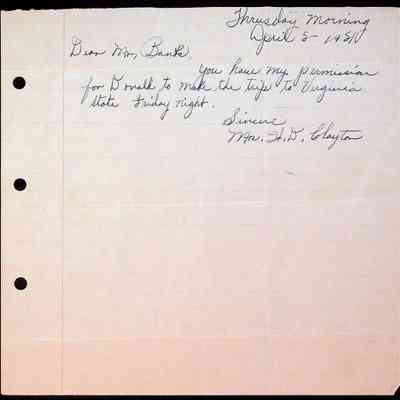 Thrusday Morning
April 5- 1951
Dear Mr. Banks,
You have my permission
for Donald to make the trip to Virginia
State Friday night.
Sincere
Mrs. H. D. Clayton